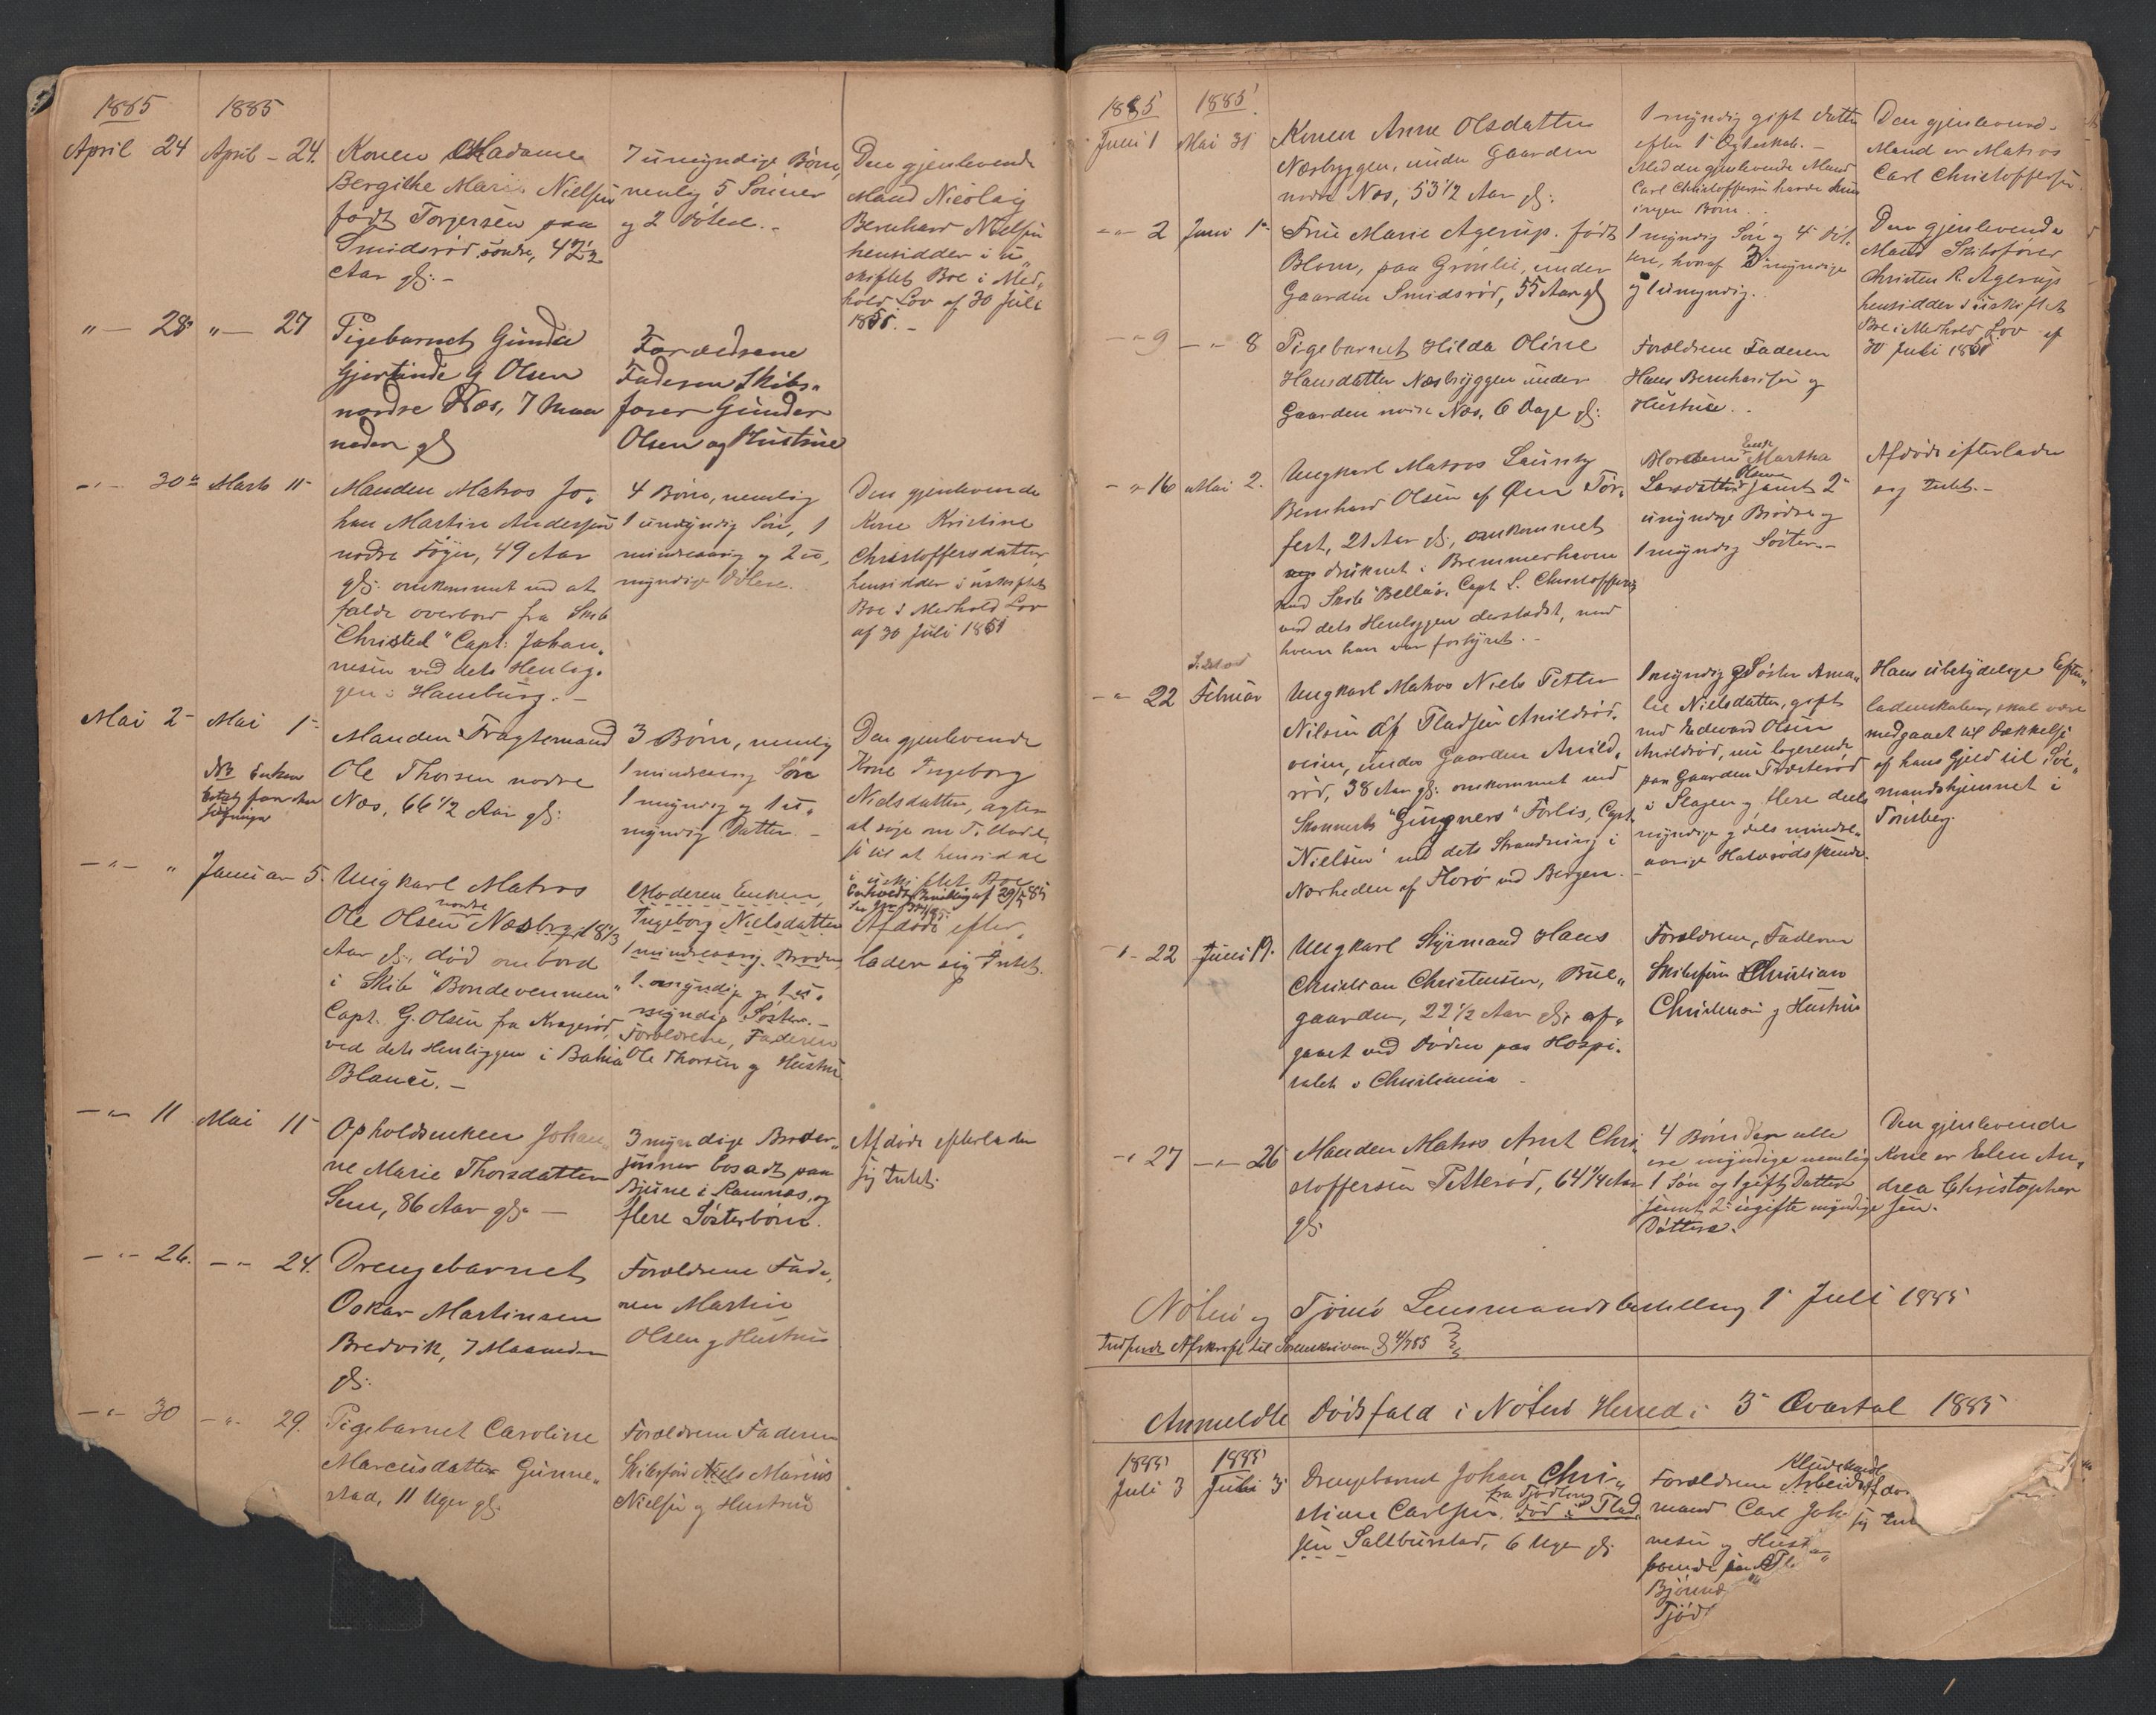 1885 1885
April 24 April - 24. Konen Madame
Bergithe Marie Nielsen
født Torjersen paa
Smidsrød søndre, 42 1/2
Aar gl: -
7 umyndige Børn,
nemlig 5 Sønner
og 2 Døtre. -
Den gjenlevende
Mand Nicolai
Bernhard Nielsen
hensidder i u„
skiftet Boe i Med„
hold Lov af 30 Juli
1851. -
" - 28 " - 27 Pigebarnet Gunda
Gjertinde G Olsen
nordre Næs, 7 Maa
neder gl
Forældrene
Faderen Skibs„
fører Gunder
Olsen og Hustrue
-"- 30 Marts 11 Manden Matros Jo„
han Martin Andersen
nordre Føyen, 49 Aar
gl: omkommet ved at
falde overbord fra Skib
"Christed" Capt: Johan„
nesen ved dets Henlig„
gen i Hamburg. -
4 Børn, nemlig
1 umyndig Søn, 1
mindreaarig og 2 u„
myndige Døtre.
Den gjenlevende
Kone Kristine
Christoffersdatter,
hensidder i uskiftet
Boe i Medhold Lov
af 30 Juli 1851
Mai 2 Mai 1 Manden Fragtemand
Ole Thorsen nordre
Næs, 66 1/2 Aar gl:
3 Børn, nemlig
1 mindreaarig Søn
1 myndig og 1 u„
myndig Datter. -
Den gjenlevende
Kone Ingeborg
Nielsdatter, agter
at søge om Tilladel„
se til at hensidde
i uskiftet Boe
-"- " Januar 5. Ungkarl Matros
Ole Olsen nordre Næsbryg 18 1/3
Aar gl:, død ombord
i Skib "Bondevennen"
Capt. G. Olsen fra Kragerø,
ved dets Henliggen i Bahia
Blance. -
Moderen Enken,
Ingeborg Nielsdatter
1 mindreaarig Broder,
1 myndig og 1 u„
myndig Søster. -
Forældrene, Faderen
Ole Thorsen og Hustru
Afdøde efter„
lader sig Intet.
-"- 11 Mai 11 Opholdsenken Johan„
ne Marie Thorsdatter
Sem, 86 Aar gl: -
3 myndige Broder„
sønner bosadt paa
Bjune i Ramnæs, og
flere Søsterbørn.
Afdøde efterlader
sig Intet.
-"- 26. -"- 24. Drengebarnet
Oskar Martinsen
Bredvik, 7 Maaneder
gl:
Forældrene Fade„
ren Martin
Olsen og Hustrue
-"- 30 -"- 29. Pigebarnet Caroline
Marcusdatter Gunne„
stad, 11 Uger gl:
Forældrene Faderen
Skibsfører Niels Marius
Nielsen og Hustrue
1885 1885
Juni 1 Mai 31 Konen Anne Olsdatter
Næsbryggen, under Gaarden
nordre Næs, 53 1/2 Aar gl:
1 myndig gift Datter
efter 1 Egteskab. -
Med den gjenlevende Mand
Carl Christoffersen havde hun
ingen Børn.
Den gjenlevende
Mand er Matros
Carl Christoffersen.
-"- 2 Juni 1 Frue Marie Agerup. født
Blom, paa Grønlie, under
Gaarden Smidsrød, 55 Aar gl
1 myndig Søn og 4 Døt„
tre, hvoraf 3 myndige
og 1 umyndig.
Den gjenlevende
Mand Skibsfører
Christen R. Agerup
hensidder i uskiftet
Boe i Medhold Lov af
30 Juli 1851
-"- 9 -"- 8 Pigebarnet Hilda Oline
Hansdatter Næsbryggen under
Gaarden nordre Næs, 6 Dage gl:
Forældrene Faderen
Hans Bernhardsen og
Hustrue.
-"- 16 Mai 2. Ungkarl Matros Lauritz
Bernhard Olsen af Øen Tor„
fest, 21 Aar gl:, omkommet
druknet i Bremmerhavn
med Skib "Bellas", Capt L. Christoffersen
ved dets Henliggen dersteds, med
hvem han var forhyret. -
Moderen Enke Martha
Larsdatter Olsen samt 2
umyndige Brødre og
1 myndig Søster. -
Afdøde efterlader
sig Intet. -
-"- 22 Februar Ungkarl Matros Niels Petter
Nilsen af Pladsen Arildsrød„
veien, under Gaarden Arild„
rød, 38 Aar gl: omkommet ved
Skonnert "Gungners" Forlis, Capt
Nielsen ved dets Strandning i
Nærheden af Florø ved Bergen. -
1 myndig Søster Ama„
lie Nielsdatter, gift
med Edward Olsen
Arildsrød, nu logerende
paa Gaarden Træsterød
i Slagen og flere deels
myndige og dels mindre„
aarige Halvsødskende.
Hans ubetydelige Efter„
ladenskaber, skal være
medgaaet til Dækkelse
af hans Gjeld til Sø„
mandshjemmet i
Tønsberg.
-"- 22 Juni 19. Ungkarl Styrmand Hans
Christian Christensen, Bue„
gaarden, 22 1/2 Aar gl: af„
gaaet ved Døden paa Hospi„
talet i Christiania -
Forældrene, Faderen
Skibsfører Christian
Christensen og Hustrue
-"- 27 -"- 26 Manden Matros Arnt Chri„
stoffersen Petterød, 64 1/4 Aar
gl:
4 Børn der alle
ere myndige nemlig
1 Søn og 1 gift Datter
samt 2 ugifte myndige
Døttre.
Den gjenlevende
Kone er Elen An„
drea Christopher
sen.
Nøterø og Tjømø Lensmandsbestilling 1 Juli 1885
Indsendt Afskrift til Sorenskriveren d 4/7 85
Anmeldte Dødsfald i Nøterø Herred i 3 Qvartal 1885
1885 1885
Juli 3 Juli 3 Drengebarnet Johan Chri„
stian Carlsen, fra Tjødling død i Plad„
sen Saltburstad, 6 Uger gl:
Forældrene Arbeids
mand Carl Joh
nesen og Hust
Bjørnd
Tjød